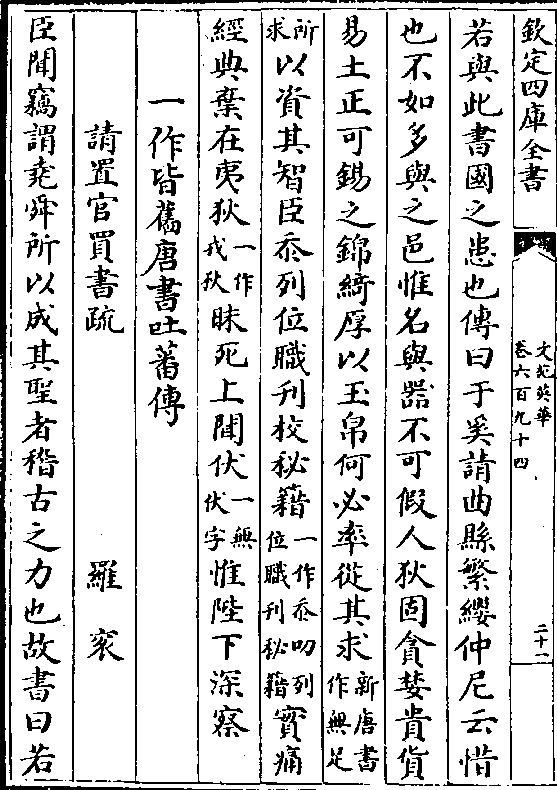 欽定四庫全書
文苑英華
卷六百九十四
二十一
若與此書國之患也傳曰于奚請曲縣繁纓仲尼云惜
也不如多與之邑惟名與器不可假人狄固貪婪貴貨
易土正可錫之錦綺厚以玉帛何必率從其求新唐書作無足
所求以資其智臣忝列位職刋校秘籍一作忝叨列位職刋秘籍實痛
經典棄在夷狄一作戎狄昧死上聞伏一無伏字惟陛下深察
一作皆舊唐書吐蕃傳
請置官買書疏 羅衮
臣聞竊謂堯舜所以成其聖者稽古之力也故書曰若